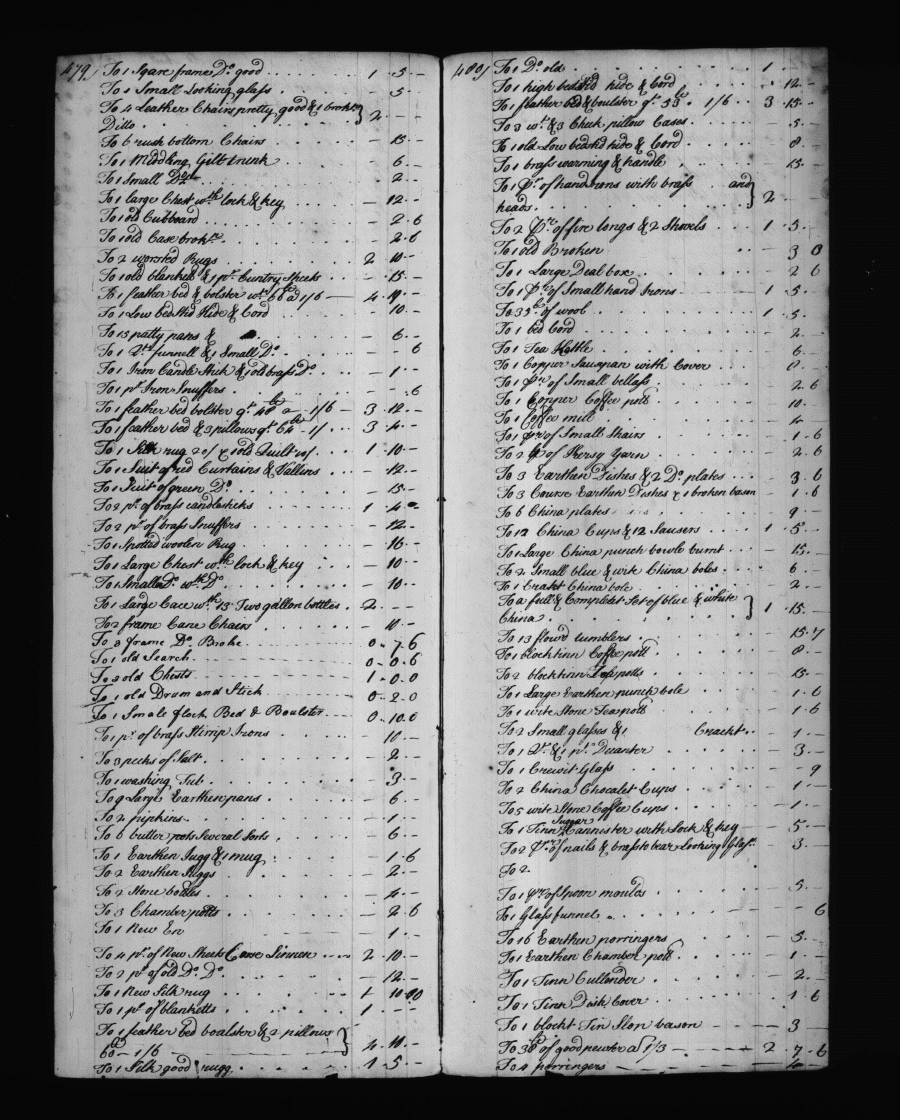 479/ To 1 Sqare frame Do. good . . . . 1 . 5 . -
To 1 Small Looking glass . . . . - 5 . -
To 4 Leather Chairs pretty good & 1 broke } 2 . -
Ditto . .
To 6 rush bottom Chairs . . . . - 15 . -
To 1 Middling Gilt trunk . . . . - 6 . -
To 1 Small Do. . . . . - 2 . -
To 1 large Chest wth. lock & key . . . . - 12 . -
To 1 old Cubboard . . . . - 2 . 6
To 1 old Case broke . . . . - 2 . 6
To 2 worsted Rugs . . . . 2 10 . -
To 1 old blanket & 1 pr. Cuntry Sheets . . . . - 15 . -
To 1 feather bed & bolster wt. lb a 1/6 - 4 . -
To 1 Low bedsted hide & Cord . . . . - 10 . -
To 15 patty pans & . . . . - 6 . -
To 1 funnell & 1 Small Do. . . . . - - 6
To 1 Iron Candle Stick & old brass Do. . . . . - 1 . -
To 1 pr. Iron Snuffers . . . . - - . 6
To 1 feather bed bolster qt. 48 lb a 1/6 - 3 . 12 . -
To 1 feather bed & 3 pillows qt. lb 1/ . . . 3 4 . -
To 1 Silk rug & 1 old Quilt . . . . 1 . 10 . -
To 1 Suit of red Curtains & Vallens . . . . - 12 . -
To 1 Suit of green Do. . . . . - 15 . -
To 2 pr. of brass candlesticks . . . . 1 4 . -
To 2 pr. of brass Snuffers . . . . - 12 . -
To 1 Spotted woolen Rug . . . . - 16 . -
To 1 Large Chest wth. lock & key . . . . - 10 . -
To 1 Smaller Do. wth. Do. . . . . - 10 . -
To 1 Large Cace wth. 15 Two gallon bottles . 2 . - -
To 2 frame Cane Chairs . . . . - 10 . -
To 3 frame Do. Broke . . . . 0 . 7 . 6
To 1 old Search . . . . 0 . 0 . 6
To 3 old Chests . . . . 1 . 0 . 0
To 1 old Drum and Stick . . . . 0 . 2 . 0
To 1 Smale flock Bed & Boulster . . . . 0 . 10 . 0
To 1 pr. of brass Stirrip Irons . . . . 10 . -
To 3 pecks of Salt . . . . - 2 . -
To 1 washing Tub . . . . - 3 . -
To 9 Large Earthen pans . . . . - 6 . -
To 2 pipkins . . . . - 1 . -
To 6 butter pots Several Sorts . . . . - 6 . -
To 1 Earthen Jugg & 1 mug . . . . - 1 . 6
To 2 Earthen Juggs . . . . - 2 . -
To 2 Stone bottles . . . . - 4 . -
To 3 Chamber potts . . . . - 2 . 6
To 1 New En - 1 . -
To 4 pr. of New Sheets Corse Linnen . . . . 2 . 10 . -
To 2 pr. of old Do. Do. . . . . - 12 . -
To 1 New Silk rug . . . . 1 10 00
To 1 pr. of blanketts . . . . 1 - - -
To 1 feather bed boalster & 2 pillows }
60 lb a 1/6 . . . . 4 . 10 . -
To 1 Silk good rugg . . . . 1 . 5 . -
480/ To 1 Do. old . . . . 1 . . -
To 1 high bedsted hide & Cord . . . . - 12 . -
To 1 feather bed & boulster qt. 50 lb . 1/6 . . 3 15 . -
To 3 wt. & 3 Check pillow Cases . . . . - 5 . -
To 1 old Low bedsted hide & Cord . . . . - 8 . -
To 1 brass warming & handle . . . . - 15 . -
To 1 pr. of handirons with brass and }
heads . . . . 2 -
To 2 pr. of fire tongs & 2 Shovels . . . . 1 . 5 . -
To 1 old Broken . . - 3 0
To 1 Large Deal box . . . . - 2 6
To 1 pr. of Small hand Irons . . . . - 1 . 5 . -
To 35 lb of wool . . . . 1 5 . -
To 1 bed Cord . . . . - 2 . -
To 1 Tea Kettle . . . . - 6 . -
To 1 Copper Sauspan with Cover . . . . - 8 . -
To 1 pr. of Small bellass . . . . - 2 . 6
To 1 Copper Coffee pott . . . . - 10 . -
To 1 Coffee mill . . . . - 4 . -
To 1 pr. of Small Stairs . . . . - 1 . 6
To 2 lb of Kersy Yarn . . . . - 2 . 6
To 3 Earthen Dishes & 2 Do. plates . . . . - 3 . 6
To 3 Course Earthen Dishes & 1 broken bason - 1 . 6
To 6 China plates . . . . - 9 . -
To 12 China Cups & 12 Sausers . . . . 1 . 5 . -
To 1 Large China punch bowle burnt . . . - 15 . -
To 2 Small blue & wite China boles . . . - 6 . -
To 1 Crackt China bole . . . . - 2 . -
To a full & Compleat Set of blue & white }
China . . . . 1 . 15 . -
To 13 flowd tumblers . . . . 15 . 7
To 1 block tinn Coffee pott . . . . - 8 . -
To 2 block tinn Tea potts . . . . - 15 . -
To 1 Large Earthen punch bole . . . . - 1 . 6
To 1 wite Stone Tea pott . . . . - 1 . 6
To 2 Small glasses & 1 Crackt . . - 1 . -
To 1 Qt. & 1 pt. Decanter . . . . - 3 . -
To 1 Crewit Glass . . . . - - 9
To 2 China Chocalet Cups . . . . - 1 . -
To 5 wite Stone Coffee Cups . . . . - 1 . -
To 1 Tinn Suggar Cannister with Lock & key - 5 . -
To 2 pr. of nails & brass to bear Looking Glass - 3 . -
To 2
To 1 pr. of Spoon moulds . . . . - 5 . -
To 1 Glass funnel . . . . - 6
To 16 Earthen porringers . . . . - 3 . -
To 1 Earthen Chamber pott . . . . - 1 . -
To 1 Tinn Cullender . . . . - 2 . -
To 1 Tinn Dish Cover . . . . - 1 6
To 1 blockt Tin Slop bason . . . . - 3 -
To lb of good pewter a 1/3 - 2 . 7 . 6
To 4 porringers